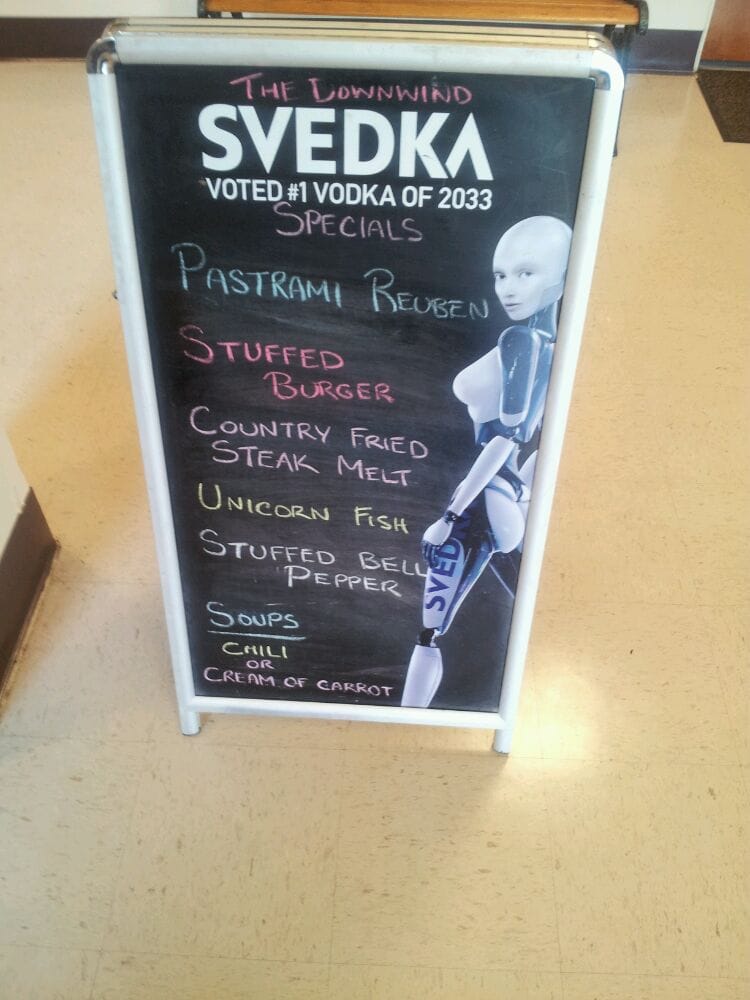 THE DOWNWIND
SVEDKA
VOTED #1 VODKA OF 2033
SPECIALS
PASTRAMI REUBEN
STUFFED
BURGER
COUNTRY FRIED
STEAK MELT
UNICORN FISH
STUFFED BELL
PEPPER
SOUPS
CHILI
OR
CREAM OF CARROT
SVEDKA